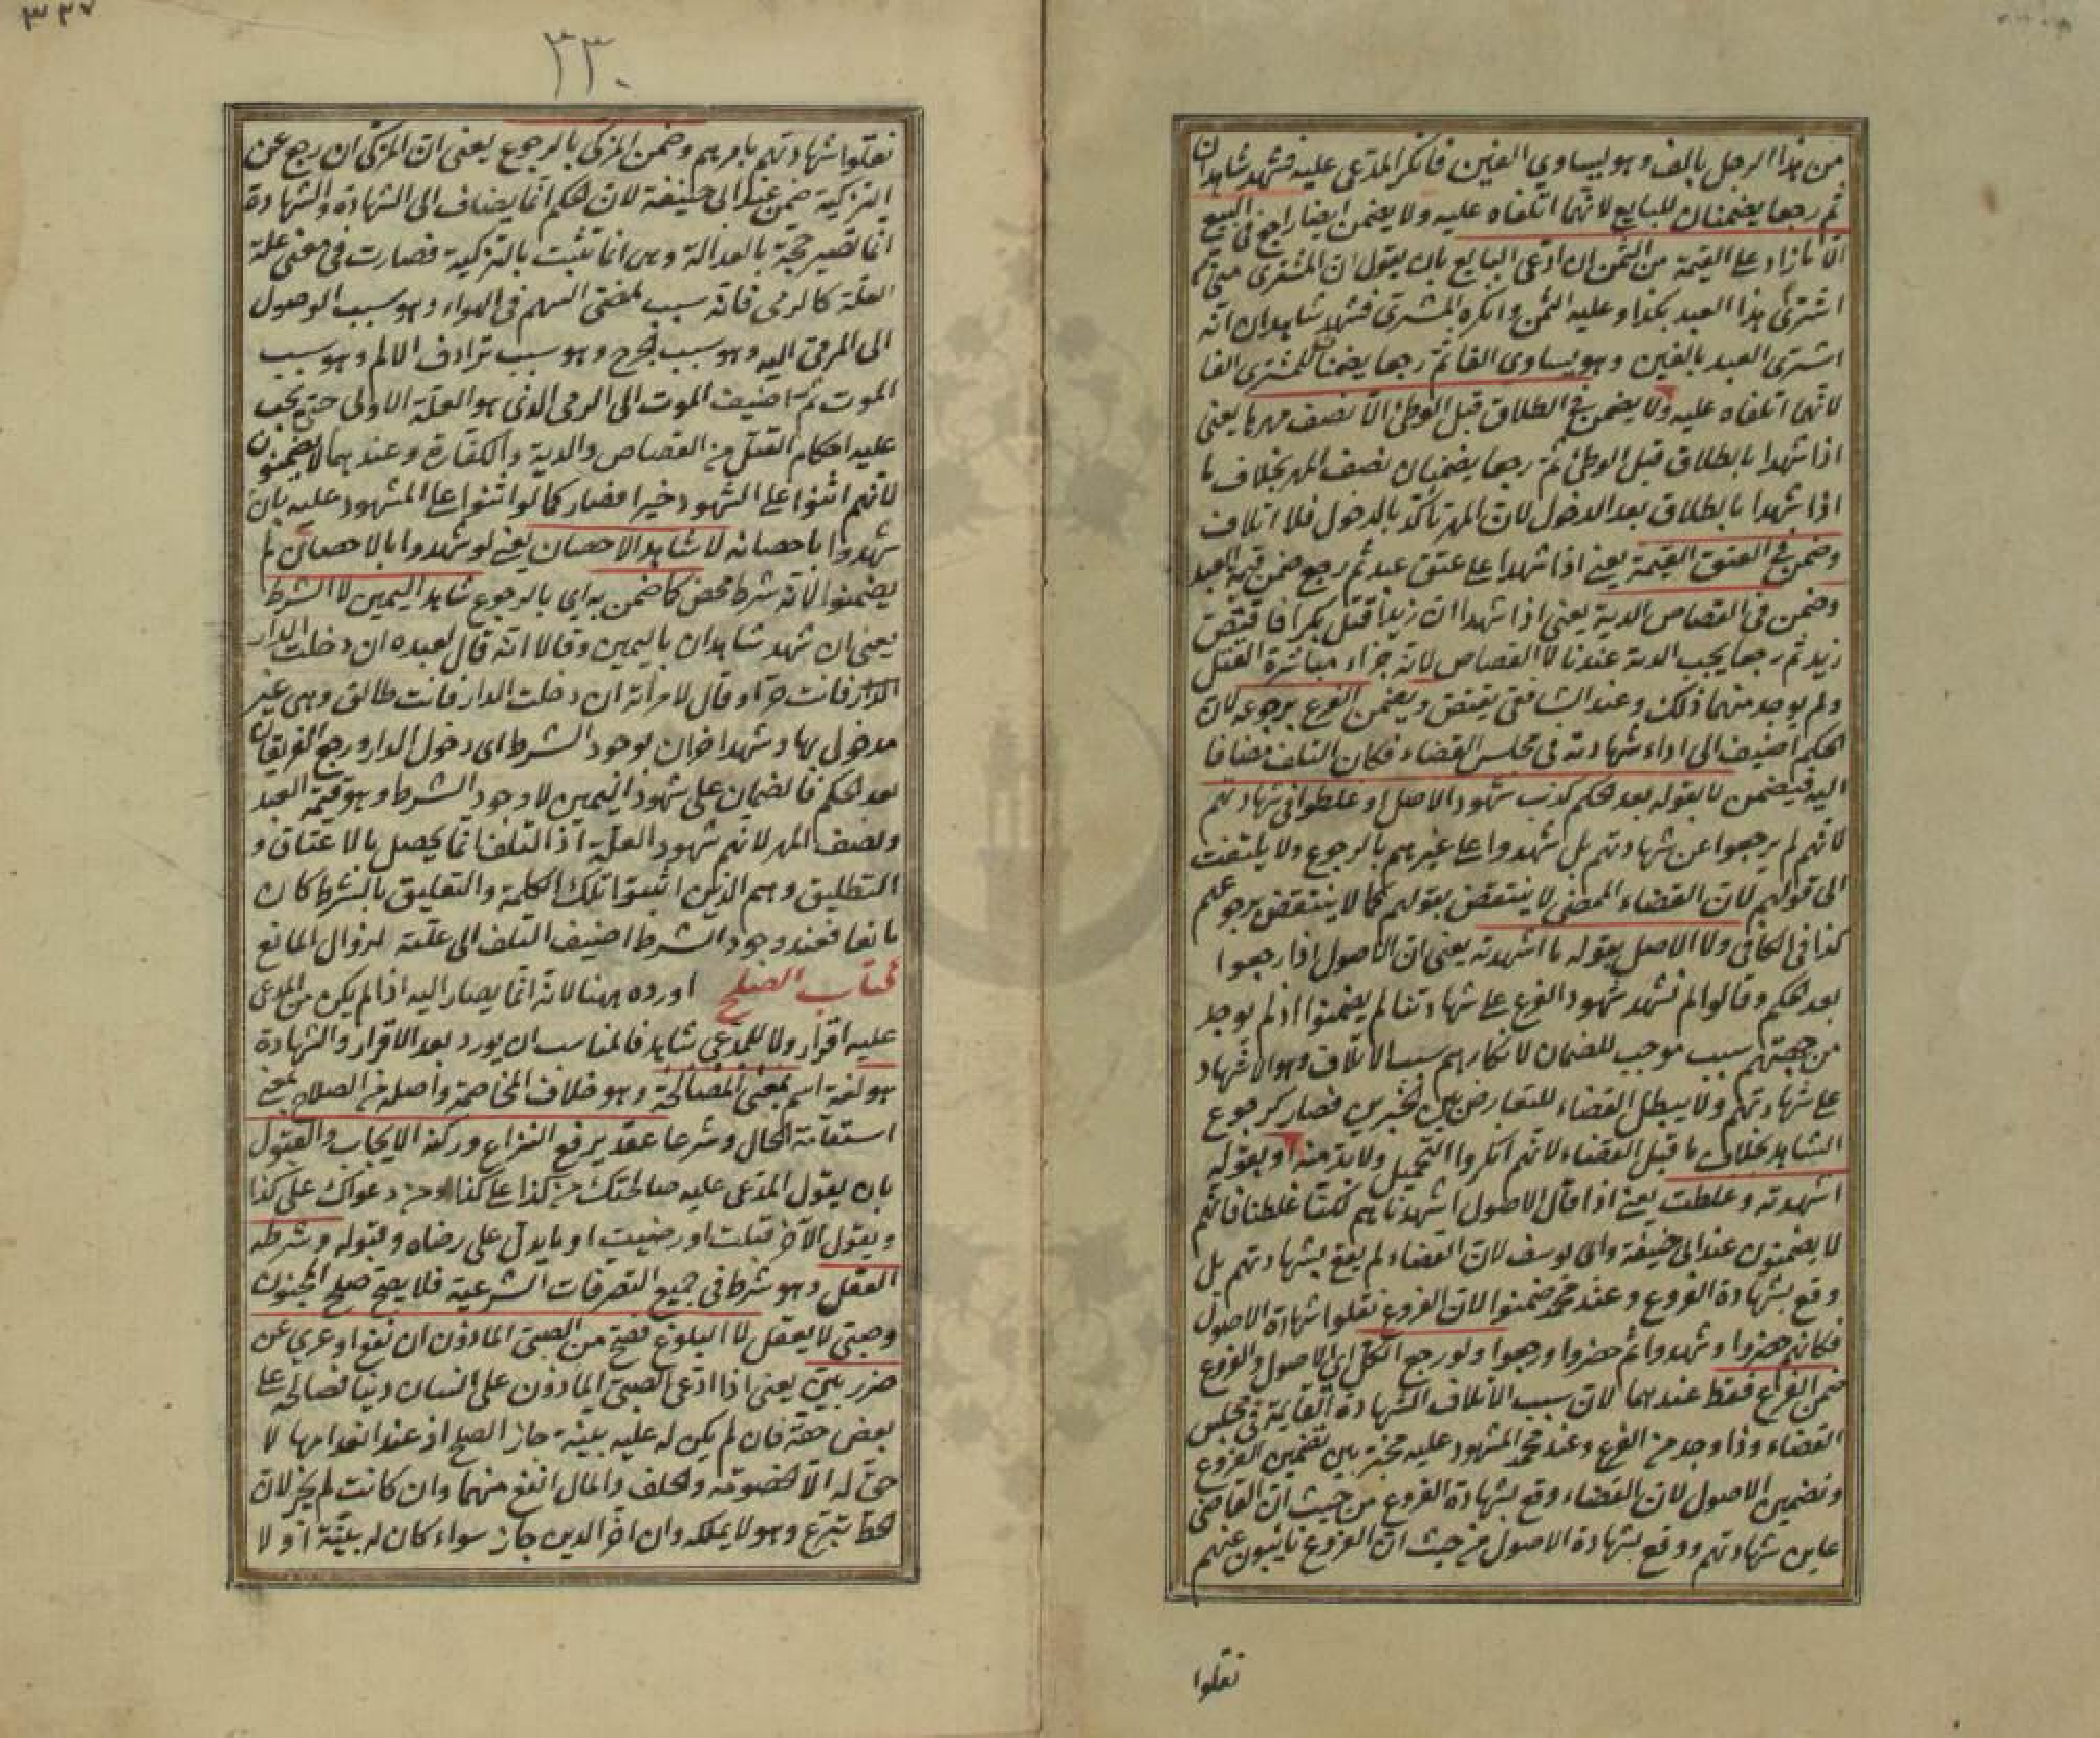 من هذا الرجل بالف وهو يساوي الفين فانكر المدعى عليه فشهد شاهدان
ثم رجعا يضمنان للبايع لانهما اتلفاه عليه ولا يضمن ايضا راجع في البيع
الا ما زاد على القيمة من الثمن ان ادعى البايع بان يقول ان المشترى مني
اشترى هذا العبد بكذا وعليه الثمن وانكره المشترى فشهد شاهدان انه
اشترى العبد بالفين وهو يساوي الفا ثم رجعا يضمنان للمشترى الفا
لانهما اتلفاه عليه ولا يضمن في الطلاق قبل الوطئ الا نصف مهرها يعني
اذا شهدا بالطلاق قبل الوطئ ثم رجعا يضمنان نصف المهر بخلاف ما
اذا شهدا بالطلاق بعد الدخول لان المهر تاكد بالدخول فلا اتلاف
وضمن في العتق القيمة يعني اذا شهدا على عتق عبد ثم رجع ضمن قيمة العبد
وضمن في القصاص الدية يعني اذا شهدا ان زيدا قتل بكرا فاقتص
زيد ثم رجعا يجب الدية عندنا لا القصاص لانه جزاء مباشرة القتل
ولم يوجد منهما ذلك وعند الشافعي يقتص ويضمن الفرع برجوعه لان
الحكم اضيف الى اداء شهادته في مجلس القضاء فكان التلف مضافا
اليه فيضمن لا بقوله بعد الحكم كذب شهود الاصل او غلطوا في شهادتهم
لانهم لم يرجعوا عن شهادتهم بل شهدوا على غيرهم بالرجوع ولا يلتفت
الى قولهم لان القضاء الممضى لا ينتقض بقولهم كما لا ينتقض برجوعهم
كذا في الكافي ولا الاصل بقوله ما اشهدته يعني ان الاصول اذا رجعوا
بعد الحكم وقالوا لم نشهد شهود الفرع على شهادتنا لم يضمنوا اذ لم يوجد
من جهتهم سبب موجب للضمان لانكارهم سبب الاتلاف وهو الاشهاد
على شهادتهم ولا يبطل القضاء للتعارض بين الخبرين فصار كرجوع
الشاهد بخلاف ما قبل القضاء لانهم انكروا التحميل ولا بد منه او بقوله
اشهدته وغلطت يعني اذا قال الاصول اشهدناهم لكنا غلطنا فانهم
لا يضمنون عند ابى حنيفة وابى يوسف لان القضاء لم يقع بشهادتهم بل
وقع بشهادة الفروع وعند محمد ضمنوا لان الفروع نقلوا شهادة الاصول
فكانهم حضروا وشهدوا ثم حضروا ورجعوا ولو رجع الكل اى الاصول والفروع
ضمن الفرع فقط عندهما لان سبب الاتلاف الشهادة القايمة في مجلس
القضاء وذا وجد من الفرع وعند محمد المشهود عليه مخير بين تضمين الفروع
وتضمين الاصول لان القضاء وقع بشهادة الفروع من حيث ان القاضى
عاين شهادتهم ووقع بشهادة الاصول من حيث ان الفروع نائبون عنهم
نقلوا
٣٣٧
٣٣٠
نقلوا شهادتهم بامرهم وضمن المزكى بالرجوع يعنى ان المزكى ان رجع عن
التزكية ضمن عند ابى حنيفة لان الحكم انما يضاف الى الشهادة والشهادة
انما تصير حجة بالعدالة وهى انما تثبت بالتزكية فصارت في معنى علة
العلة كالرمى فانه سبب لمضى السهم في الهواء وهو سبب الوصول
الى المرمى اليه وهو سبب الجرح وهو سبب ترادف الالم وهو سبب
الموت ثم اضيف الموت الى الرمى الذى هو العلة الاولى حتى يجب
عليه احكام القتل من القصاص والدية والكفارة وعندهما لا يضمنون
لانهم اثنوا على الشهود خيرا فصار كما لو اثنوا على المشهود عليه بان
شهدوا باحصانه لا شاهد الاحصان يعني لو شهدوا بالاحصان لم
يضمنوا لانه شرط محض كما ضمن به اي بالرجوع شاهد اليمين لا الشرط
يعنى ان شهد شاهدان باليمين وقالا انه قال لعبده ان دخلت الدار
الدار فانت حر او قال لامرأته ان دخلت الدار فانت طالق وهى غير
مدخول بها وشهد اخران بوجود الشرط اى دخول الدار ورجع الفريقان
بعد الحكم فالضمان على شهود اليمين لا وجود الشرط وهو قيمة العبد
ونصف المهر لانهم شهود العلة اذ التلف انما يحصل بالاعتاق و
التطليق وهم الذين اثبتوا تلك الكلمة والتعليق بالشرط كان
مانعا فعند وجود الشرط اضيف التلف الى علته لزوال المانع
كتاب الصلح اورده ههنا لانه انما يصار اليه اذا لم يكن من المدعى
عليه اقرار ولا للمدعى شاهد فالمناسب ان يورد بعد الاقرار والشهادة
هو لغة اسم بمعنى المصالحة وهو خلاف المخاصمة واصله من الصلاح بمعنى
استقامة الحال وشرعا عقد يرفع النزاع وركنه الايجاب والقبول
بان يقول المدعى عليه صالحتك من كذا على كذا او من دعواك على كذا
ويقول الآخر قبلت او رضيت او ما يدل على رضاه وقبوله وشرطه
العقل وهو شرط في جميع التصرفات الشرعية فلا يصح صلح المجنون
وصبى لا يعقل لا البلوغ فصح من الصبى الماذون ان نفع او عري عن
ضرر بين يعنى اذا ادعى الصبى الماذون على انسان دينا فصالحه على
بعض حقه فان لم يكن له عليه بينة جاز الصلح اذ عند انعدامها لا
حق له الا الخصومة والحلف والمال انفع منهما وان كانت لم يجز لان
الحط تبرع وهو لا يملكه وان اخر الدين جاز سواء كان له بينة او لا